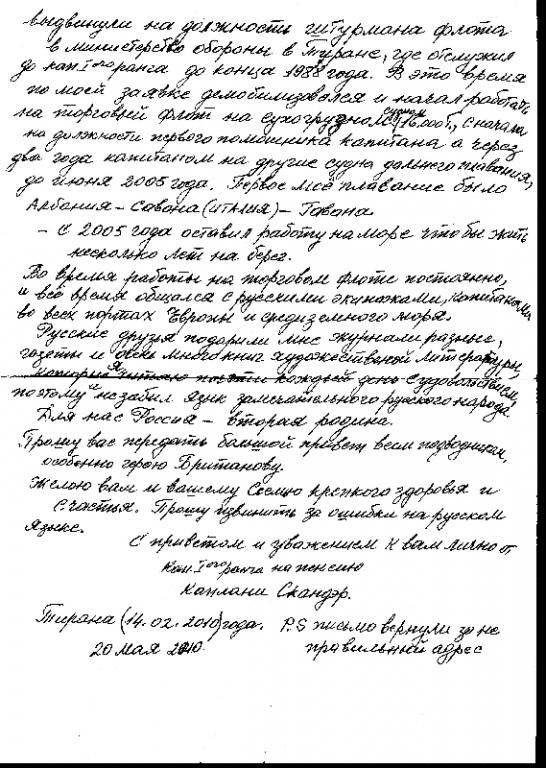 выдвинули на должность штурмана флота
в министерство обороны в Тиране, где отслужил
до кап. I ого ранга до конца 1988 года. В это время
по моей заявке демобилизовался и начал работать
на торговый флот на сухогрузном судном 16.000т., сначала
на должности первого помошника капитана а через
два года капитаном на другие судна дальнего плавания,
до июня 2005 года. Первое моё плавание было
Албания – Савона (италия) – Гавана
– С 2005 года оставил работу на море чтобы жить
несколько лет на берег.
Во время работы на торговом флоте постоянно,
и всё время общался с русскими экипажами, капитанами
во всех портах Европы и средиземного моря.
Русские друзья подарили мне журнали разные,
газеты и очень много книг художественой литературы,
которие я читаю почти каждый день с удовольствием,
поэтому и незабил язык замечательного русского народа.
Для нас Россия – вторая родина.
Прошу вас передать большой привет всем подводникам,
особенно герою Британову.
Желою вам и вашему Семью крепкого здоровья и
счастья. Прошу извинить за ошибки на русском
языке.
С приветом и уважением к вам лично от
Кап. I ого ранга на пенсию
Каплани Скандэр.
Тирана (14.02.2010) года. P.S письмо вернули за не
20 мая 2010. правильный адрес